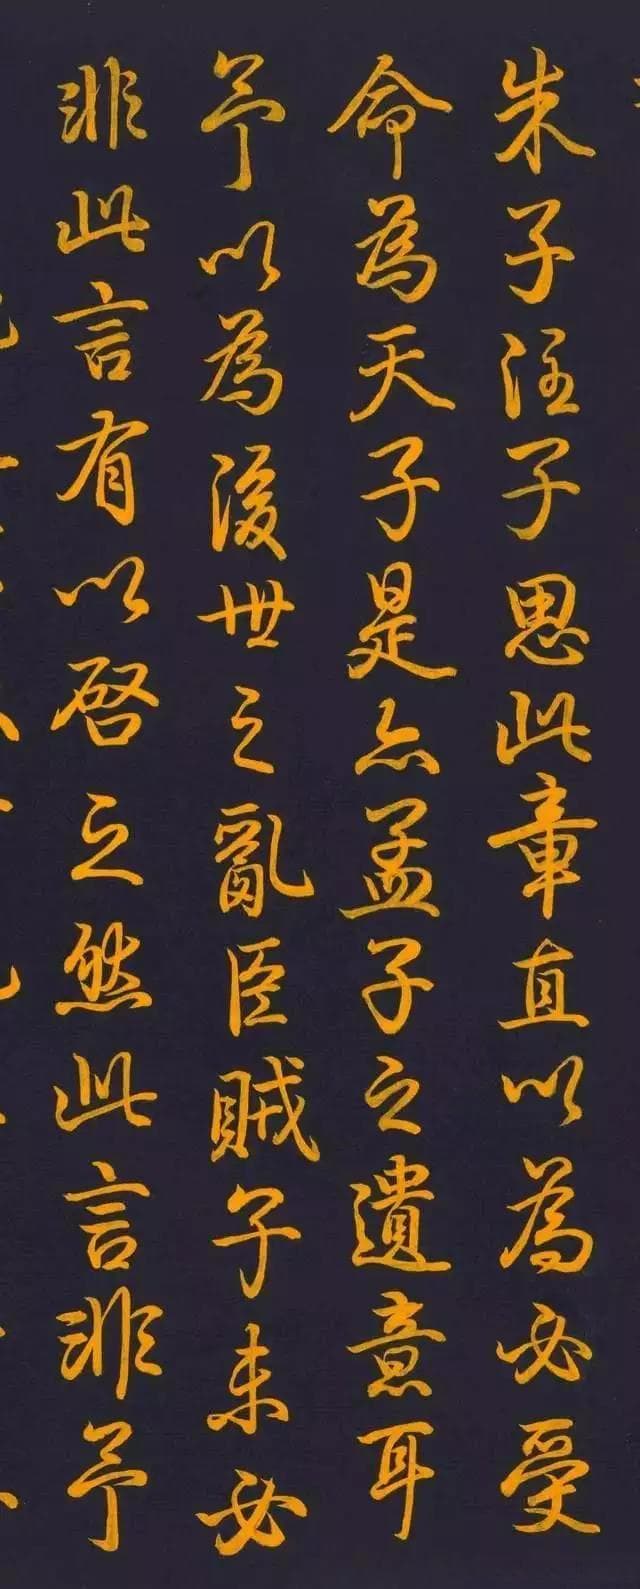 朱子注子思此章直以為必受
命為天子是亦孟子之遺意耳
予以為後世之亂臣賊子未必
非此言有以啓之然此言非予